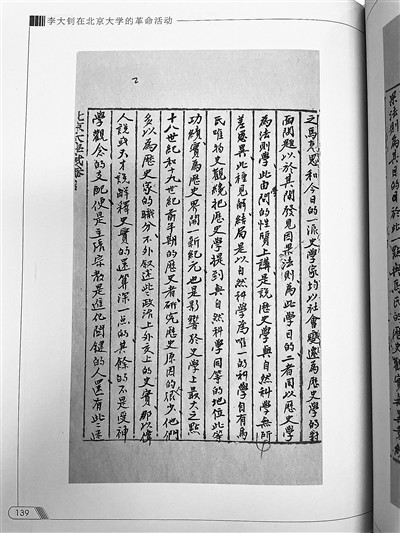 李大钊在北京大学的革命活动
之馬克思和今日的一派史学家均以社會變遷為歷史学的對
面問題以於其間發見因果法則為此学目的二者用以歷史学
為法則学此由学問的性質上講是說歷史学與自然科学無所
差異此種見解結局是以自然科学為唯一的科学自有馬
氏唯物史觀纔把歷史学提到與自然科学同等的地位此等
功績實為歷史界開一新紀元也是影響於史学上最大之點
十八世紀和十九世紀前半期的歷史者研究歷史原因的很少他們
多以為歷史家的職分不外叙述些政治上外交上的史實那以偉
人說或天才說解釋史實的還算深一点的其餘的不是受神
學觀念的支配便是主張宗教是進化關鍵的人還有此一
北京大學試卷
139